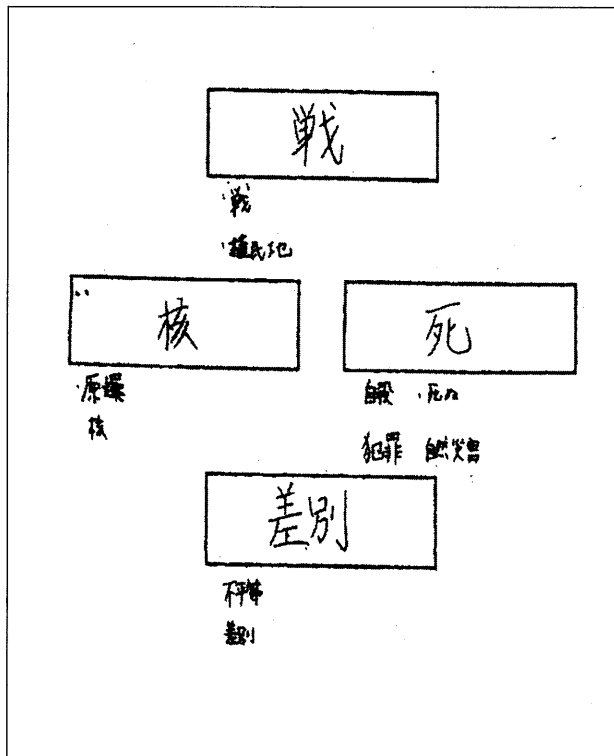 戦
・戦
・植民地
核
・原爆
核
死
自殺 ・死ね
犯罪 自然災害
差別
不平等
差別